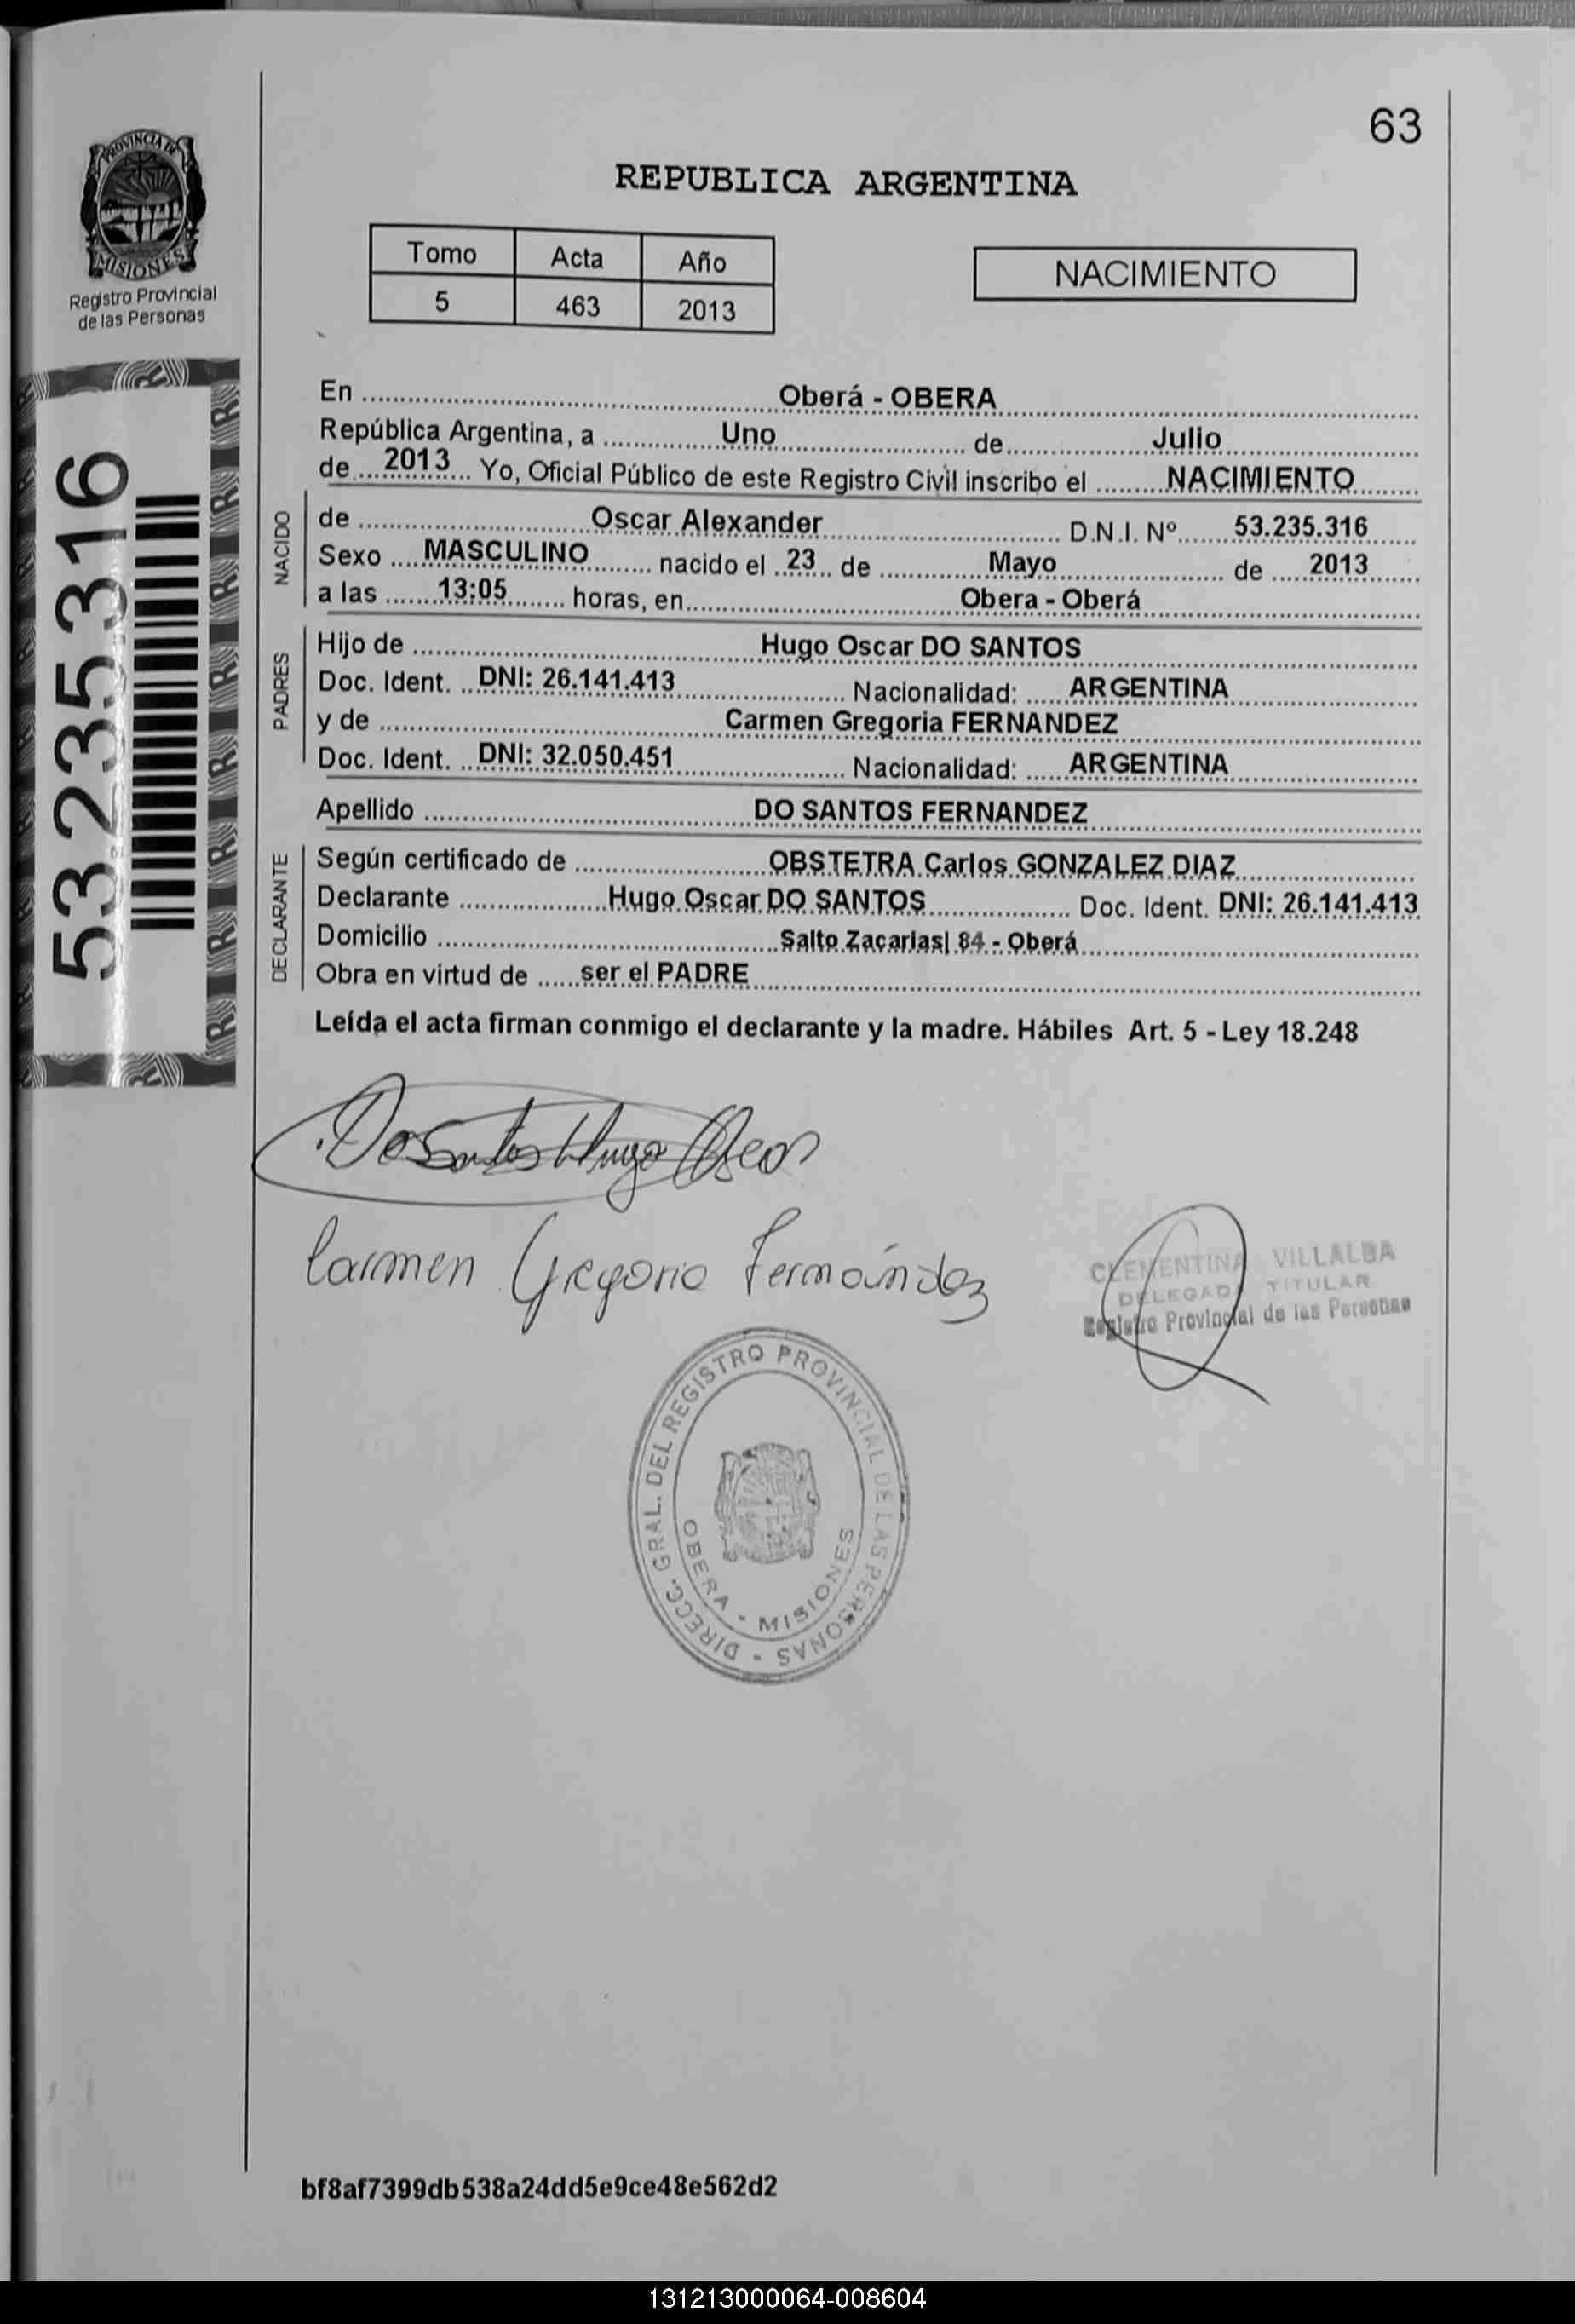 63
PROVINCIA DE
MISIONES
Registro Provincial
de las Personas
53235316
REPUBLICA ARGENTINA
Tomo Acta Año
5 463 2013
NACIMIENTO
En Oberá - OBERA
República Argentina, a Uno de Julio
de 2013 Yo, Oficial Público de este Registro Civil inscribo el NACIMIENTO
NACIDO
de Oscar Alexander D.N.I. Nº 53.235.316
Sexo MASCULINO nacido el 23 de Mayo de 2013
a las 13:05 horas, en Obera - Oberá
PADRES
Hijo de Hugo Oscar DO SANTOS
Doc. Ident. DNI: 26.141.413 Nacionalidad: ARGENTINA
y de Carmen Gregoria FERNANDEZ
Doc. Ident. DNI: 32.050.451 Nacionalidad: ARGENTINA
Apellido DO SANTOS FERNANDEZ
DECLARANTE
Según certificado de OBSTETRA Carlos GONZALEZ DIAZ
Declarante Hugo Oscar DO SANTOS Doc. Ident. DNI: 26.141.413
Domicilio Salto Zacarias| 84 - Oberá
Obra en virtud de ser el PADRE
Leída el acta firman conmigo el declarante y la madre. Hábiles Art. 5 - Ley 18.248
Do Santos Hugo Oscar
Carmen Gregoria Fernández
CLEMENTINA VILLALBA
DELEGADA TITULAR
Registro Provincial de las Personas
DIRECC. GRAL. DEL REGISTRO PROVINCIAL DE LAS PERSONAS -
OBERA - MISIONES
bf8af7399db538a24dd5e9ce48e562d2
131213000064-008604